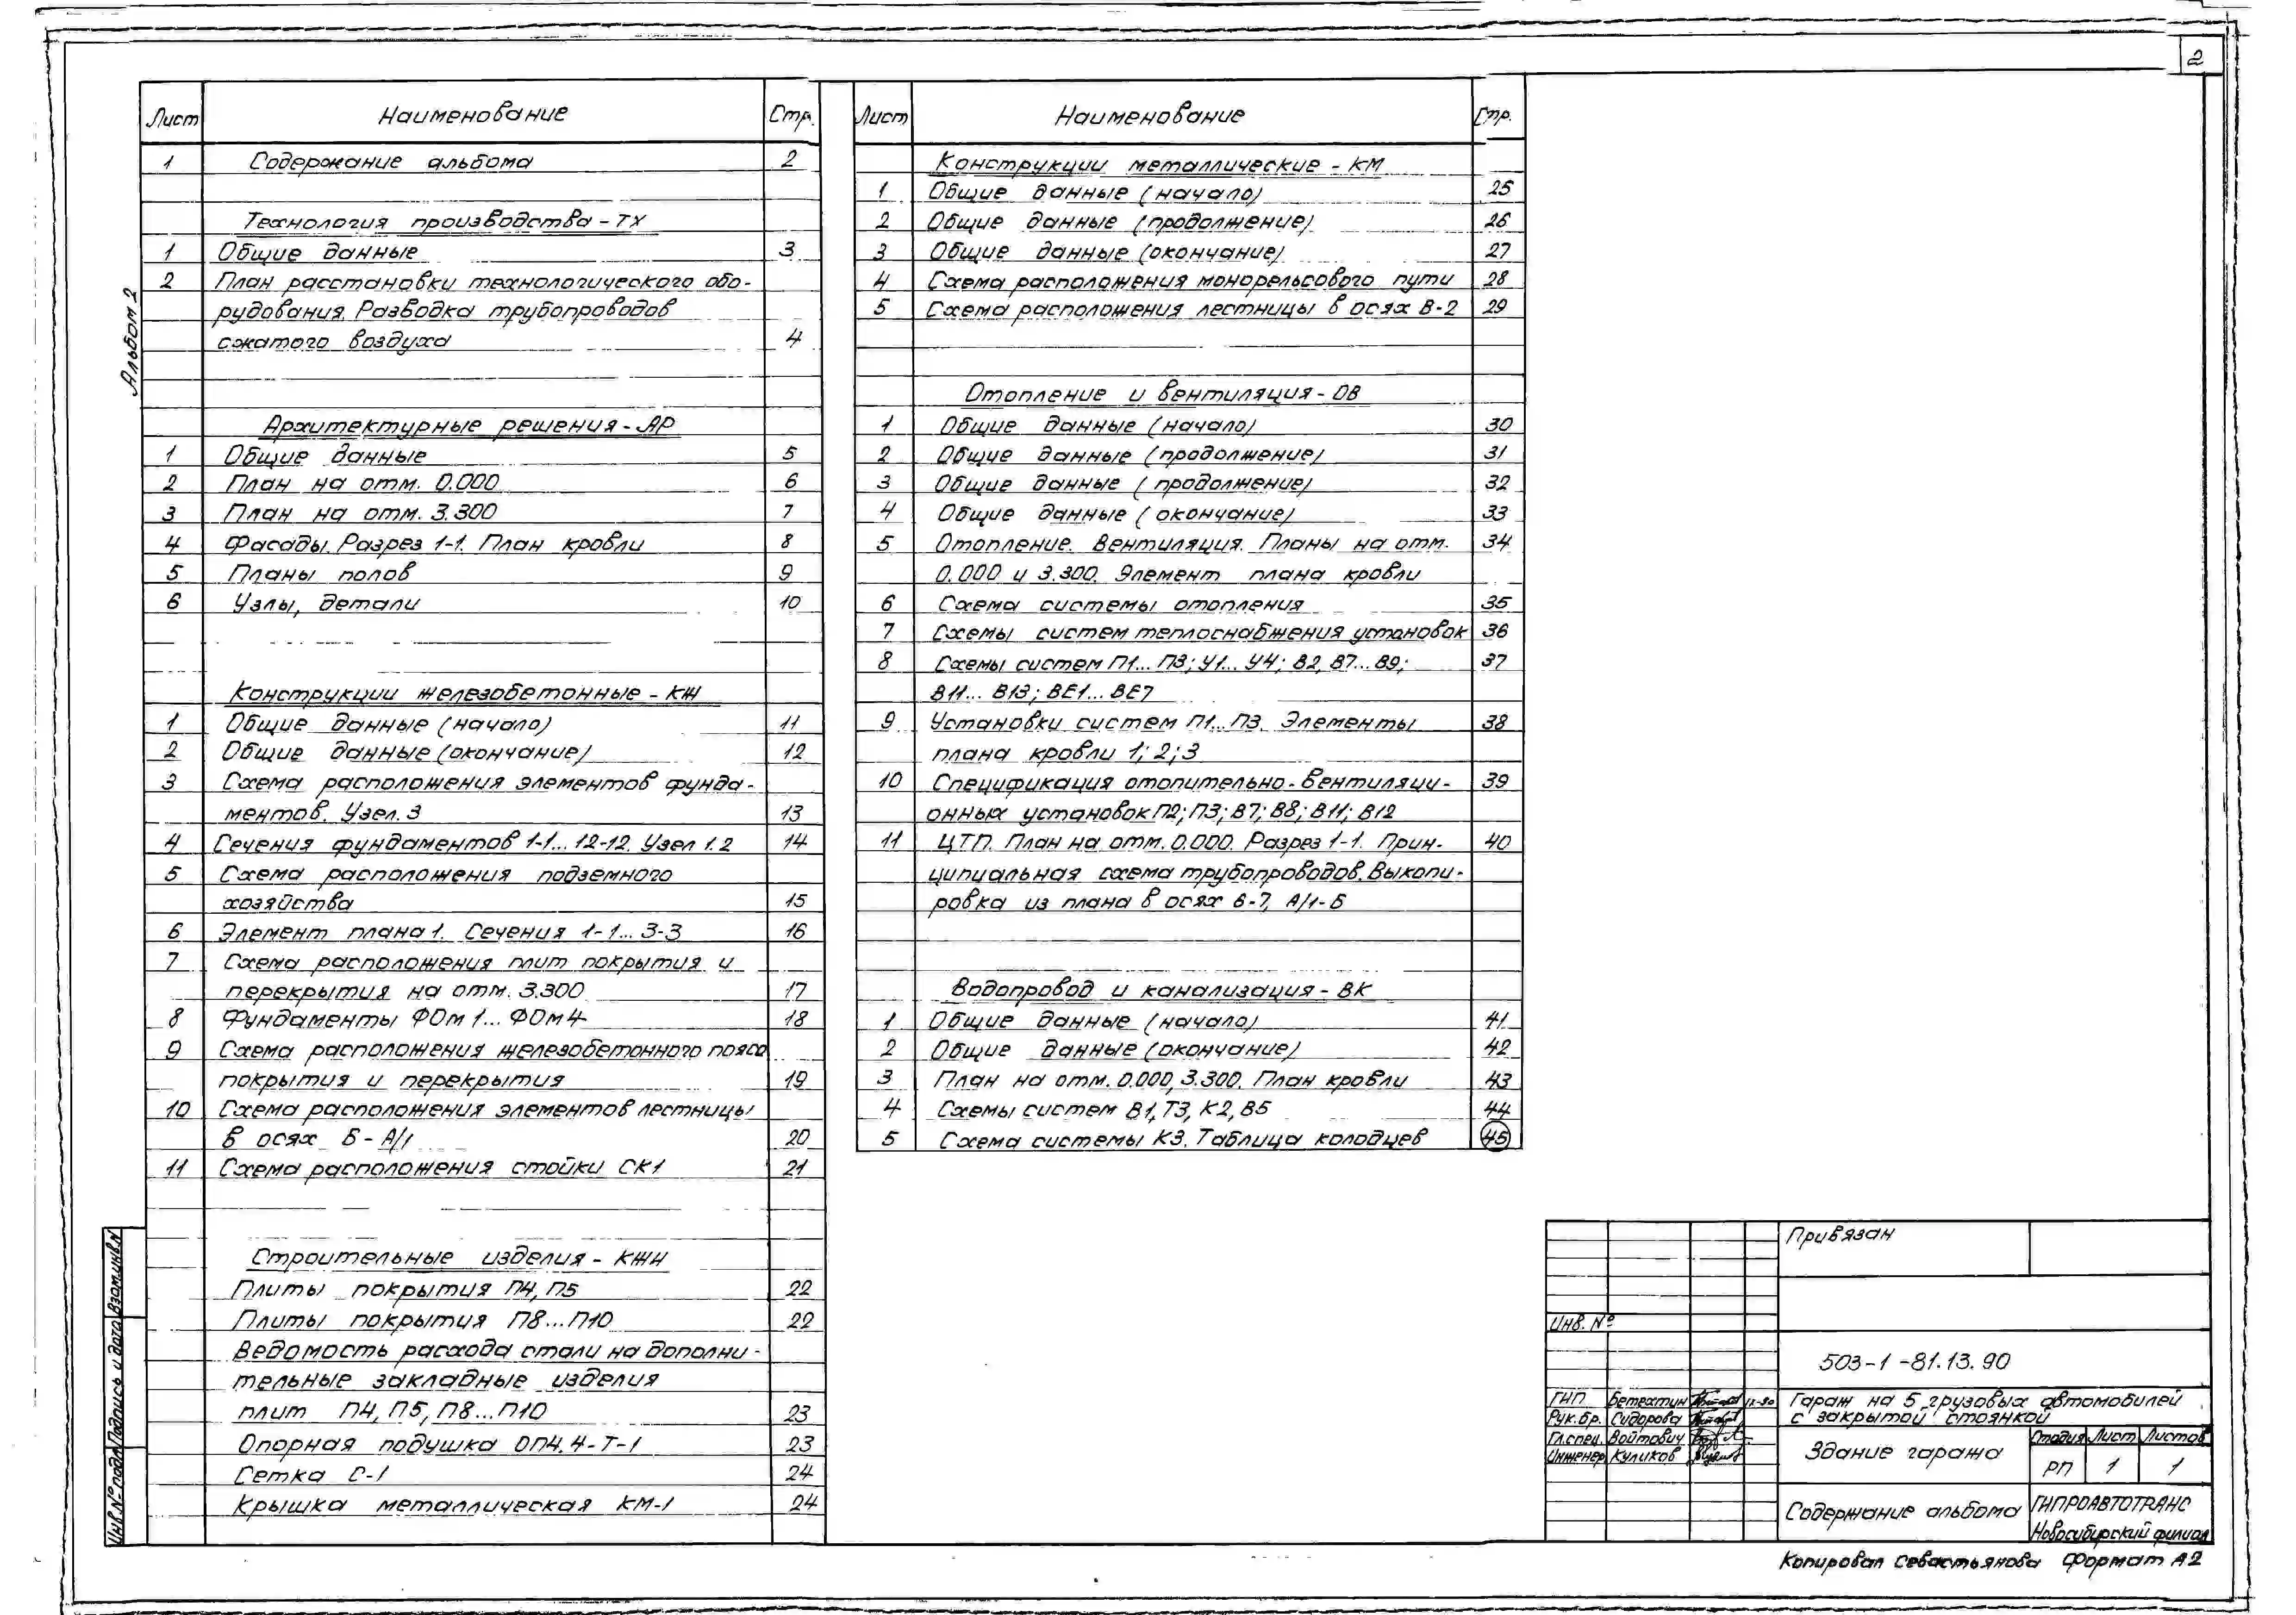 2
Альбом 2
Лист Наименование Стр.
1 Содержание альбома 2
Технология производства - ТХ
1 Общие данные 3
2 План расстановки технологического обо-
рудования. Разводка трубопроводов
сжатого воздуха 4
Архитектурные решения - АР
1 Общие данные 5
2 План на отм. 0.000 6
3 План на отм. 3.300 7
4 Фасады. Разрез 1-1. План кровли 8
5 Планы полов 9
6 Узлы, детали 10
Конструкции железобетонные - КЖ
1 Общие данные (начало) 11
2 Общие данные (окончание) 12
3 Схема расположения элементов фунда-
ментов. Узел. 3 13
4 Сечения фундаментов 1-1... 12-12. Узел 1.2 14
5 Схема расположения подземного
хозяйства 15
6 Элемент плана 1. Сечения 1-1... 3-3 16
7 Схема расположения плит покрытия и
перекрытия на отм. 3.300 17
8 Фундаменты ФОм 1... ФОм 4 18
9 Схема расположения железобетонного пояса
покрытия и перекрытия 19
10 Схема расположения элементов лестницы
в осях Б - А/1 20
11 Схема расположения стойки СК1 21
Строительные изделия - КЖИ
Плиты покрытия П4, П5 22
Плиты покрытия П8...П10 22
Ведомость расхода стали на дополни-
тельные закладные изделия
плит П4, П5, П8...П10 23
Опорная подушка ОП4.4-Т-1 23
Сетка С-1 24
Крышка металлическая КМ-1 24
Лист Наименование Стр.
Конструкции металлические - КМ
1 Общие данные (начало) 25
2 Общие данные (продолжение) 26
3 Общие данные (окончание) 27
4 Схема расположения монорельсового пути 28
5 Схема расположения лестницы в осях В-2 29
Отопление и вентиляция - ОВ
1 Общие данные (начало) 30
2 Общие данные (продолжение) 31
3 Общие данные (продолжение) 32
4 Общие данные (окончание) 33
5 Отопление. Вентиляция. Планы на отм. 34
0.000 и 3.300. Элемент плана кровли
6 Схема системы отопления 35
7 Схемы систем теплоснабжения установок 36
8 Схемы систем П1... П3; У1... У4; В2, В7... В9; 37
В11... В13; ВЕ1... ВЕ7
9 Установки систем П1... П3. Элементы 38
плана кровли 1; 2; 3
10 Спецификация отопительно-вентиляци- 39
онных установок П2; П3; В7; В8; В11; В12
11 ЦТП. План на отм. 0.000. Разрез 1-1. Прин- 40
ципиальная схема трубопроводов. Выкопи-
ровка из плана в осях 6-7, А/1-Б
Водопровод и канализация - ВК
1 Общие данные (начало) 41
2 Общие данные (окончание) 42
3 План на отм. 0.000, 3.300. План кровли 43
4 Схемы систем В1, Т3, К2, В5 44
5 Схема системы К3. Таблица колодцев 45
Инв.№ подл. Подпись и дата Взам.инв.N
Привязан
Инв. №
503-1-81.13.90
ГИП Бетехтин 12-90
Рук.бр. Сидорова
Гл.спец. Войтович
Инженер Куликов
Гараж на 5 грузовых автомобилей
с закрытой стоянкой
Здание гаража
Стадия Лист Листов
РП 1 1
Содержание альбома
ГИПРОАВТОТРАНС
Новосибирский филиал
Копировал Севастьянова Формат А2